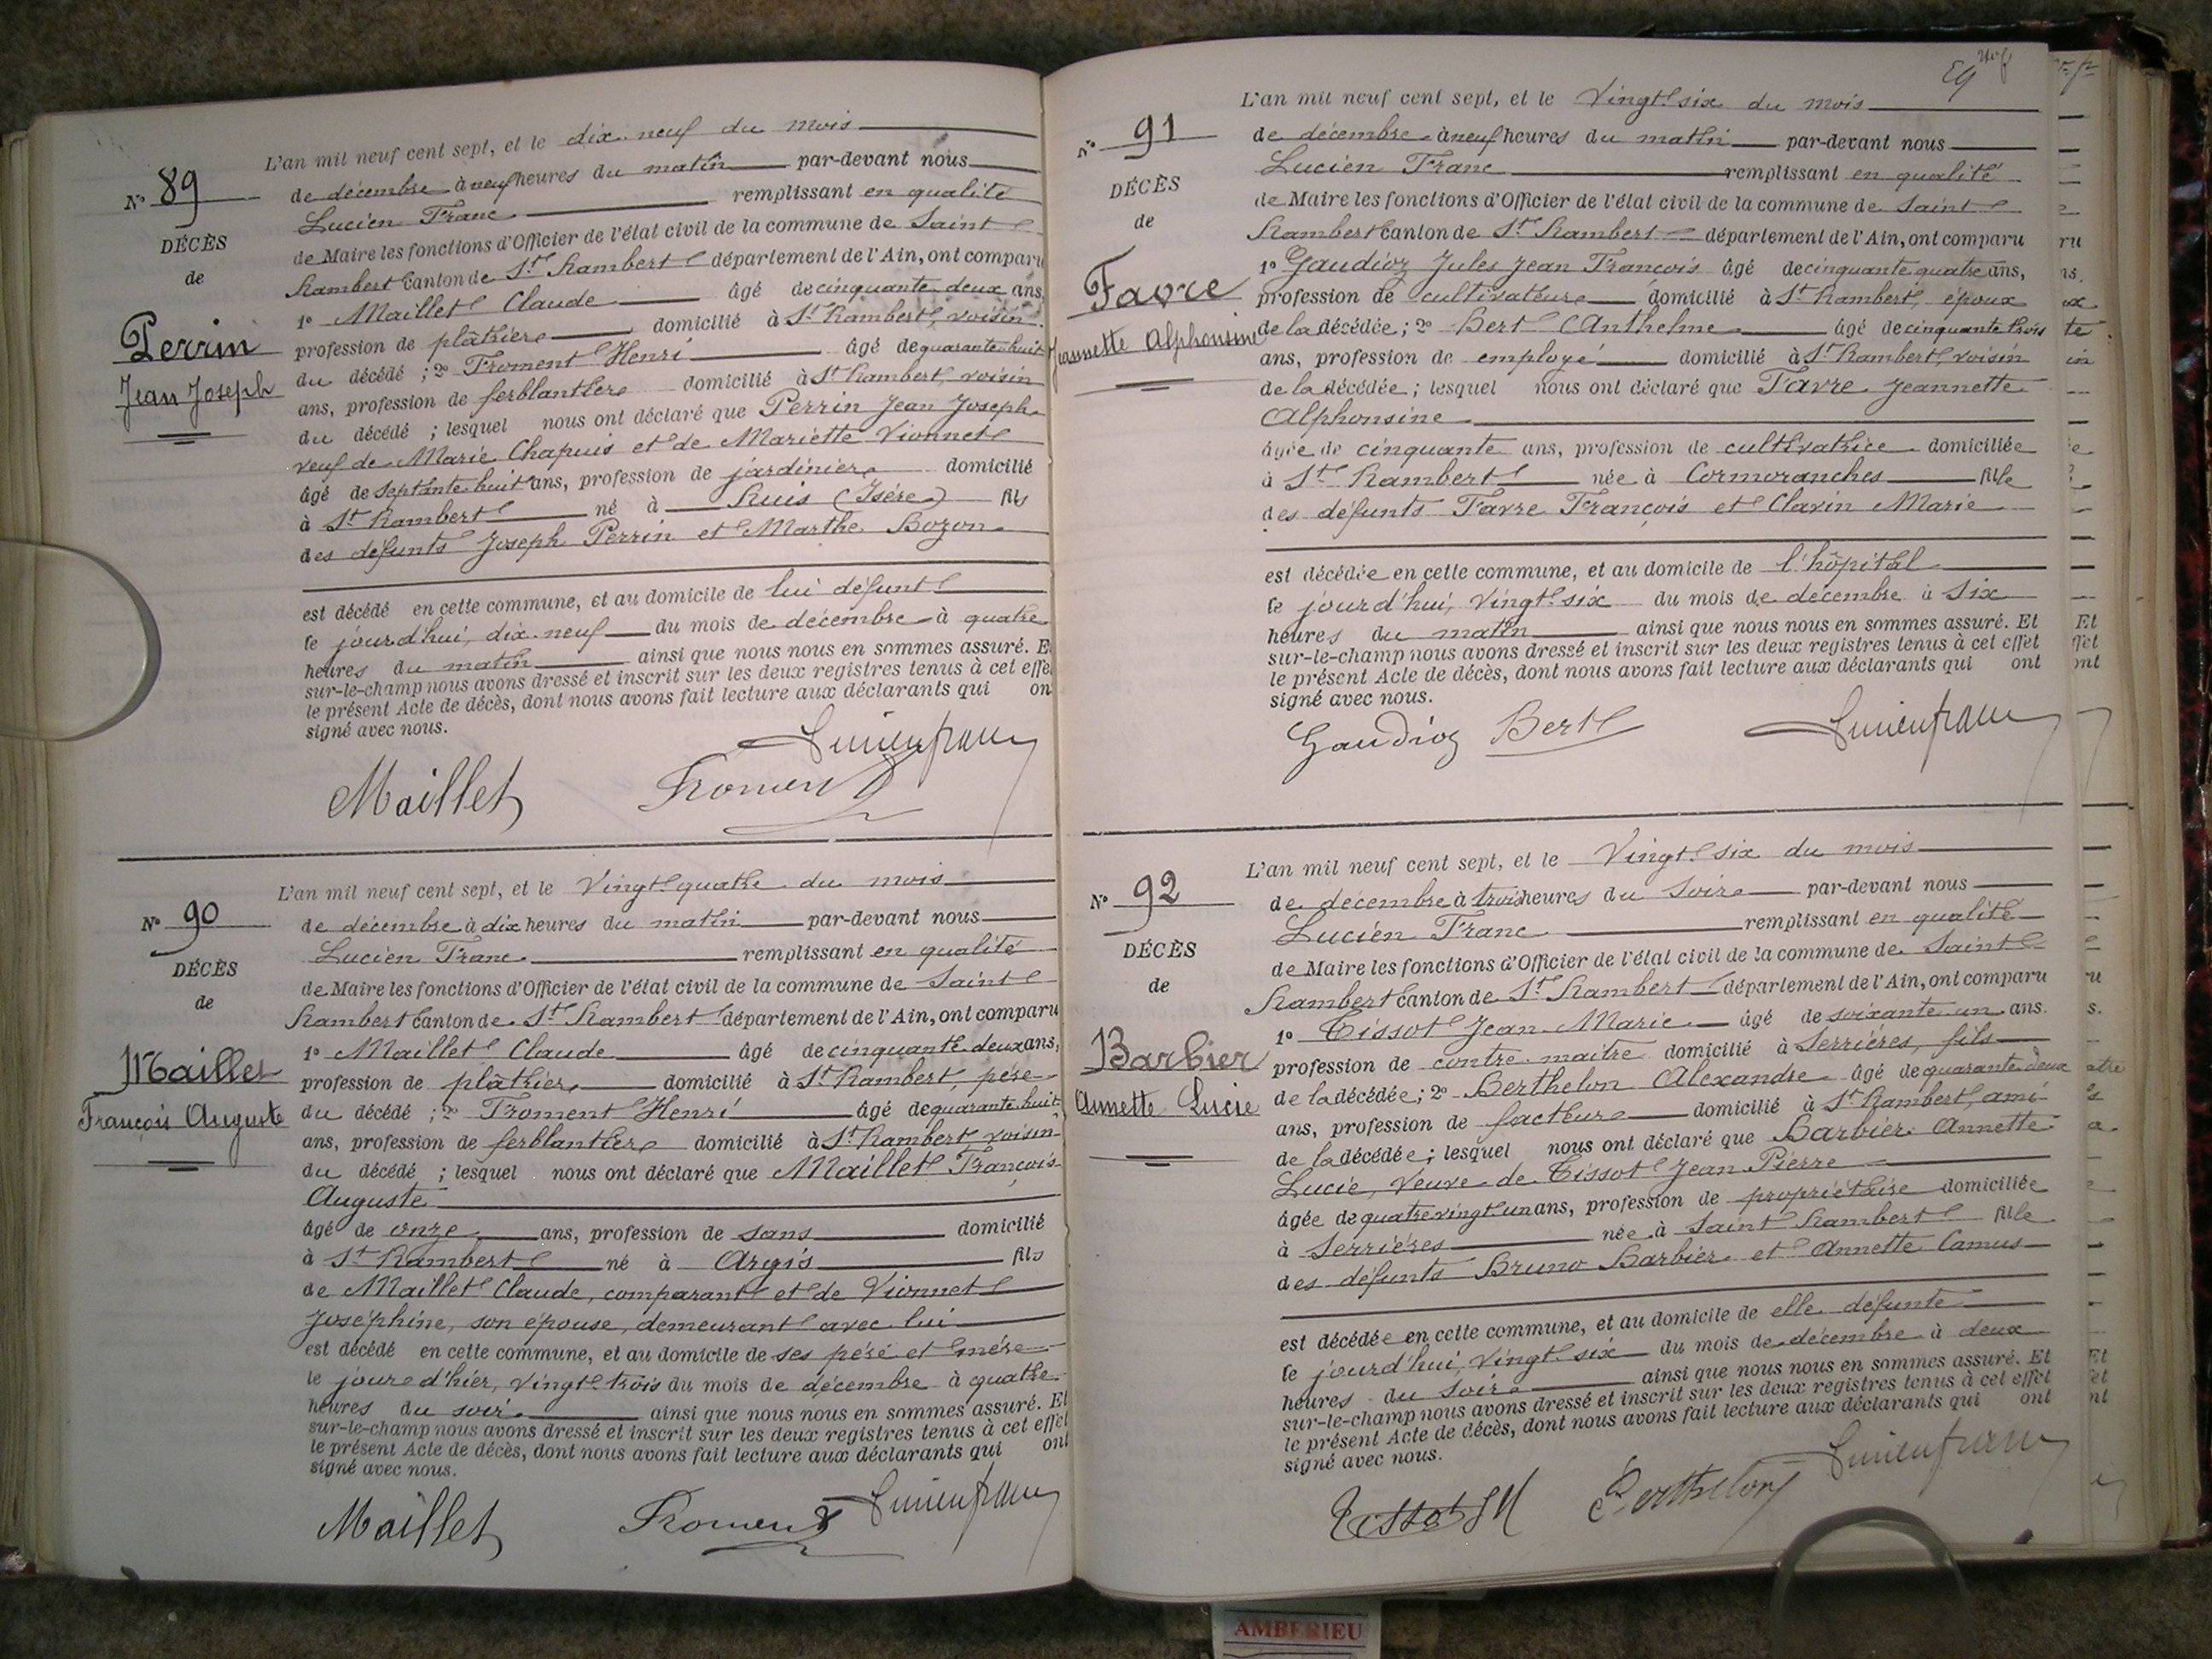 L'an mil neuf cent sept, et le dix-neuf du mois
N° 89
de décembre à neuf heures du matin par-devant nous
Lucien Franc remplissant en qualité
DÉCÈS
de Maire les fonctions d'Officier de l'état civil de la commune de Saint
de
Rambert Canton de St Rambert département de l'Ain, ont comparu
1° Maillet Claude âgé de cinquante deux ans
Perrin
profession de plâtrier domicilié à St Rambert, voisin
Jean Joseph
du décédé ; 2° Froment Henri âgé de quarante huit
ans, profession de ferblantier domicilié à St Rambert, voisin
du décédé ; lesquel nous ont déclaré que Perrin Jean Joseph
veuf de Marie Chapuis et de Mariette Vionnet
âgé de septante huit ans, profession de jardinier domicilié
à St Rambert né à Ruis (Isère) fils
des défunts Joseph Perrin et Marthe Bozon
est décédé en cette commune, et au domicile de lui défunt
le jourd'hui, dix-neuf du mois de décembre à quatre
heures du matin ainsi que nous nous en sommes assuré. E
sur-le-champ nous avons dressé et inscrit sur les deux registres tenus à cet effe
le présent Acte de décès, dont nous avons fait lecture aux déclarants qui on
signé avec nous.
Lucien franc
Maillet Froment
L'an mil neuf cent sept, et le Vingt quatre du mois
N° 90
de décembre à dix heures du matin par-devant nous
Lucien Franc remplissant en qualité
DÉCÈS
de Maire les fonctions d'Officier de l'état civil de la commune de Saint
de
Rambert Canton de St Rambert département de l'Ain, ont comparu
1° Maillet Claude âgé de cinquante deux ans,
Maillet
profession de plâtrier domicilié à St Rambert, père
François Auguste
du décédé ; 2° Froment Henri âgé de quarante huit
ans, profession de ferblantier domicilié à St Rambert voisin
du décédé ; lesquel nous ont déclaré que Maillet François
Auguste
âgé de onze ans, profession de sans domicilié
à St Rambert né à Argis fils
de Maillet Claude, comparant et de Vionnet
Joséphine, son épouse, demeurant avec lui
est décédé en cette commune, et au domicile de ses père et mère
le jour d'hier, vingt trois du mois de décembre à quatre
heures du soir ainsi que nous nous en sommes assuré. Et
sur-le-champ nous avons dressé et inscrit sur les deux registres tenus à cet effet
le présent Acte de décès, dont nous avons fait lecture aux déclarants qui ont
signé avec nous.
Lucien franc
Maillet Froment
L'an mil neuf cent sept, et le Vingt six du mois
N° 91
de décembre à neuf heures du matin par-devant nous
Lucien Franc remplissant en qualité
DÉCÈS
de Maire les fonctions d'Officier de l'état civil de la commune de Saint
de
Rambert Canton de St Rambert département de l'Ain, ont comparu
1° Gaudioz Jules Jean François âgé de cinquante quatre ans,
Favre
profession de cultivateur domicilié à St Rambert, époux
Jeannette Alphonsine
de la décédée ; 2° Bert Anthelme âgé de cinquante trois
ans, profession de employé domicilié à St Rambert, voisin
de la décédée ; lesquel nous ont déclaré que Favre Jeannette
Alphonsine
âgée de cinquante ans, profession de cultivatrice domiciliée
à St Rambert née à Cormoranches fille
des défunts Favre François et Clavin Marie
est décédée en cette commune, et au domicile de l'hôpital
le jourd'hui, vingt six du mois de décembre à six
heures du matin ainsi que nous nous en sommes assuré. Et
sur-le-champ nous avons dressé et inscrit sur les deux registres tenus à cet effet
le présent Acte de décès, dont nous avons fait lecture aux déclarants qui ont
signé avec nous.
Gaudioz Bert Lucien franc
L'an mil neuf cent sept, et le Vingt six du mois
N° 92
de décembre à trois heures du soir par-devant nous
Lucien Franc remplissant en qualité
DÉCÈS
de Maire les fonctions d'Officier de l'état civil de la commune de Saint
de
Rambert Canton de St Rambert département de l'Ain, ont comparu
1° Tissot Jean Marie âgé de soixante un ans.
Barbier
profession de contre-maître domicilié à Serrières, fils
Annette Lucie
de la décédée ; 2° Berthelon Alexandre âgé de quarante deux
ans, profession de facteur domicilié à St Rambert, ami
de la décédée ; lesquel nous ont déclaré que Barbier Annette
Lucie, veuve de Tissot Jean Pierre
âgée de quatre vingt un ans, profession de propriétaire domiciliée
à Serrières née à Saint Rambert fille
des défunts Bruno Barbier et Annette Camus
est décédée en cette commune, et au domicile de elle défunte
le jourd'hui, vingt six du mois de décembre à deux
heures du soir ainsi que nous nous en sommes assuré. Et
sur-le-champ nous avons dressé et inscrit sur les deux registres tenus à cet effet
le présent Acte de décès, dont nous avons fait lecture aux déclarants qui ont
signé avec nous.
Tissot JM Berthelon Lucien franc
AMBERIEU